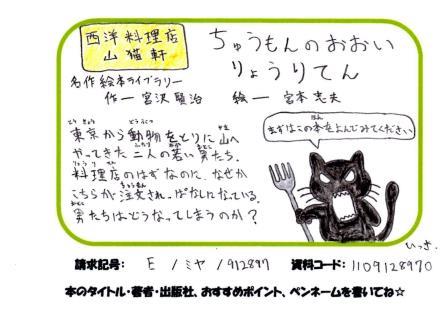 西洋料理店
山猫軒
ちゅうもんのおおい
りょうりてん
名作絵本ライブラリー
作ー宮沢賢治 絵ー宮本忠夫
東京から動物をとりに山へ
やってきた二人の若い男たち。
料理店のはずなのに、なぜか
こちらが注文されっぱなしになっている。
男たちはどうなってしまうのか?
まずはこの本をよんでみてください
いっさ。
請求記号: E /ミヤ /912897 資料コード:1109128970
本のタイトル・著者・出版社、おすすめポイント、ペンネームを書いてね☆